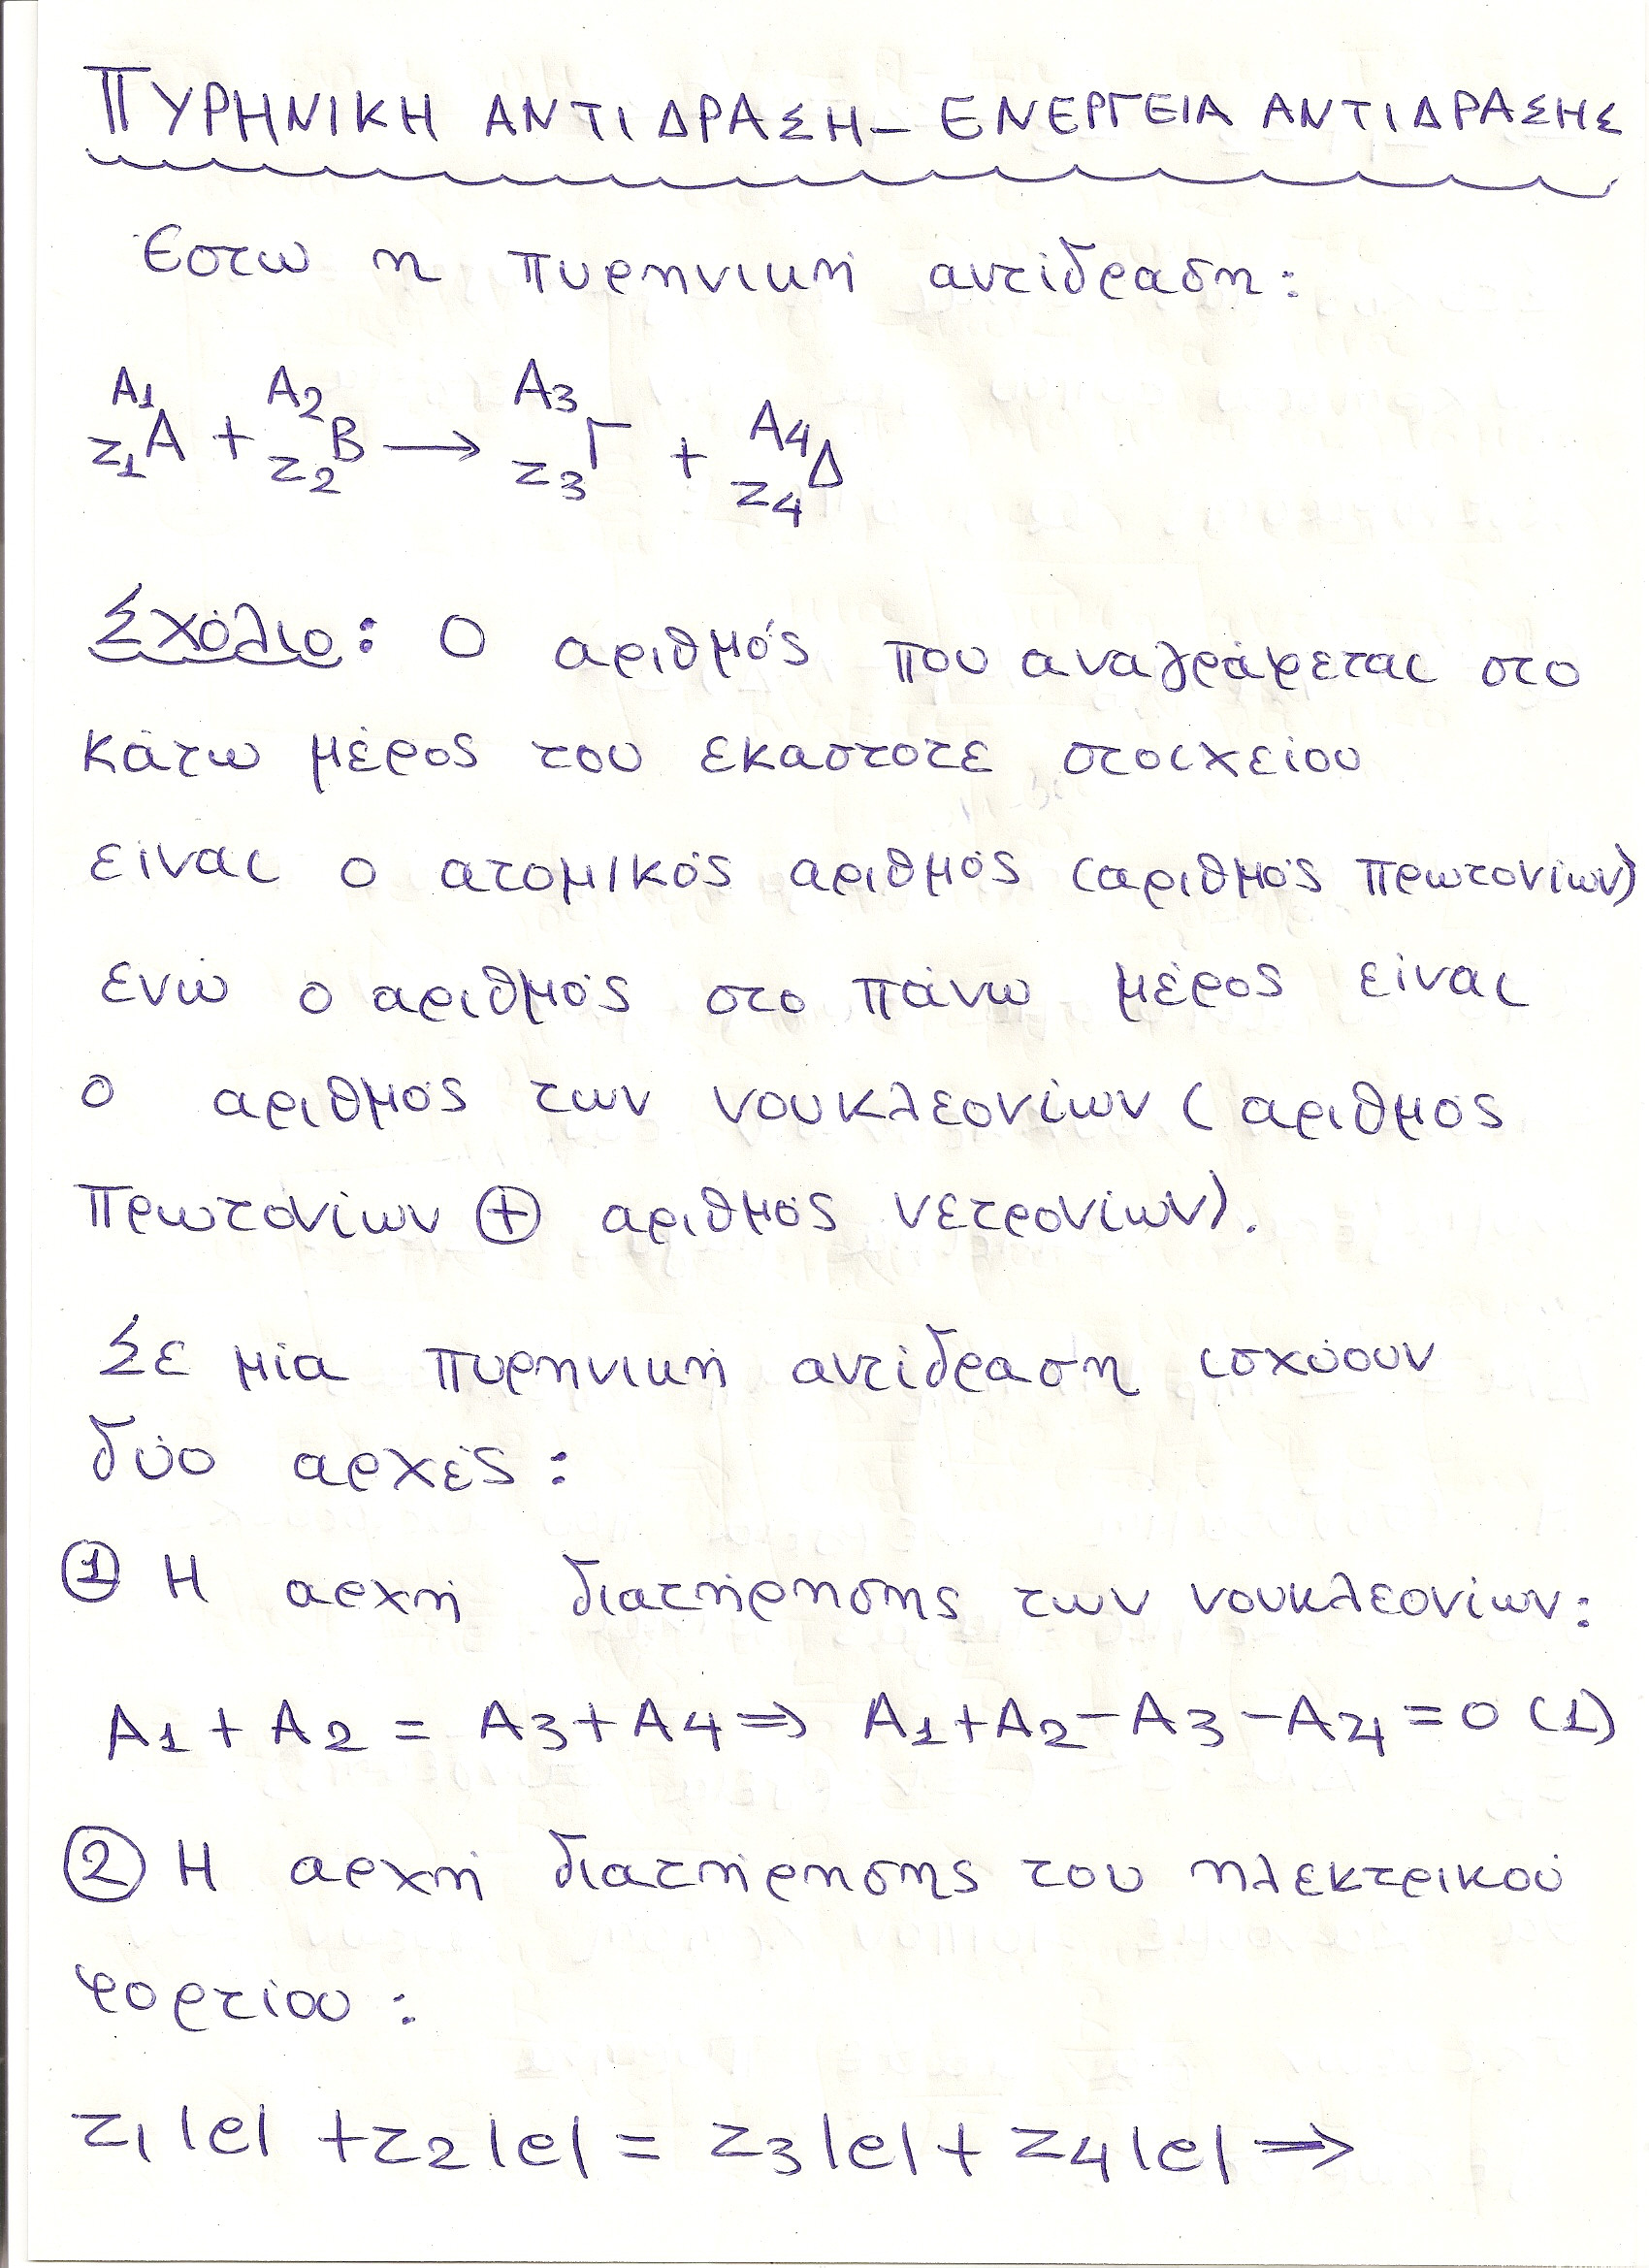 ΠΥΡΗΝΙΚΗ ΑΝΤΙΔΡΑΣΗ - ΕΝΕΡΓΕΙΑ ΑΝΤΙΔΡΑΣΗΣ
Έστω η πυρηνική αντίδραση:
A1 A2 A3 A4
Z1 A + Z2 B → Z3 Γ + Z4 Δ
Σχόλιο: Ο αριθμός που αναγράφεται στο
κάτω μέρος του εκάστοτε στοιχείου
είναι ο ατομικός αριθμός (αριθμός πρωτονίων)
ενώ ο αριθμός στο πάνω μέρος είναι
ο αριθμός των νουκλεονίων (αριθμός
πρωτονίων ⊕ αριθμός νετρονίων).
Σε μία πυρηνική αντίδραση ισχύουν
δύο αρχές:
① Η αρχή διατήρησης των νουκλεονίων:
A1 + A2 = A3 + A4 ⇒ A1 + A2 - A3 - A4 = 0 (1)
② Η αρχή διατήρησης του ηλεκτρικού
φορτίου:
Z1 |e| + Z2 |e| = Z3 |e| + Z4 |e| ⇒